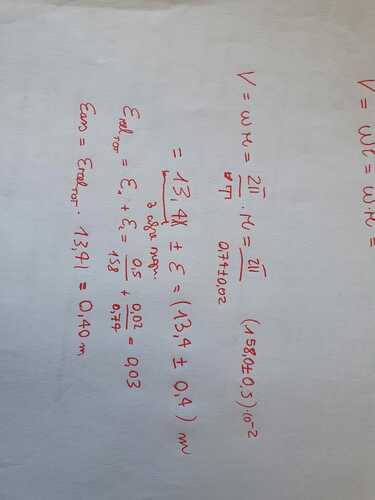 V = ωt = ω·r =
V = ω r = 2π/T · r = 2π/0,74±0,02 (158,0±0,5)·10⁻²
= 13,41 ± ε = (13,4 ± 0,4) m
ε rel TOT = ε₁ + ε₂ = 0,5/158 + 0,02/0,74 = 0,03
ε ass = ε rel TOT · 13,41 = 0,40 m